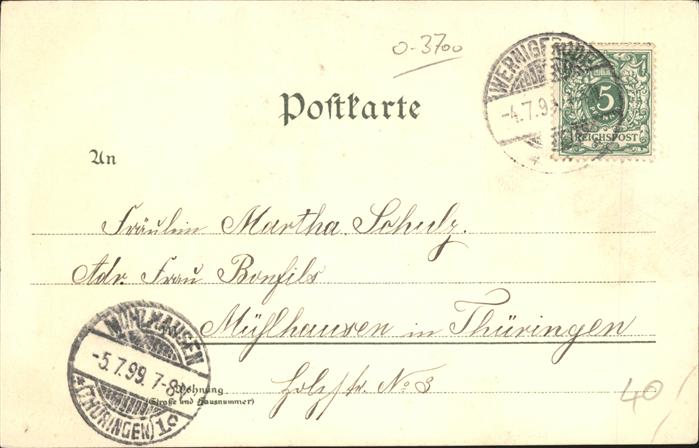 0-3700
WERNIGERODE
-4.7.99
5
PFENNIG
REICHSPOST
Postkarte
An
Fräulein Martha Schulz.
Adr. Frau Bonfils
Mühlhausen in Thüringen
Holzstr. No 3
MÜHLHAUSEN
-5.7.99. 7-8
*(THÜRINGEN)1c
Wohnung
(Straße und Hausnummer)
40